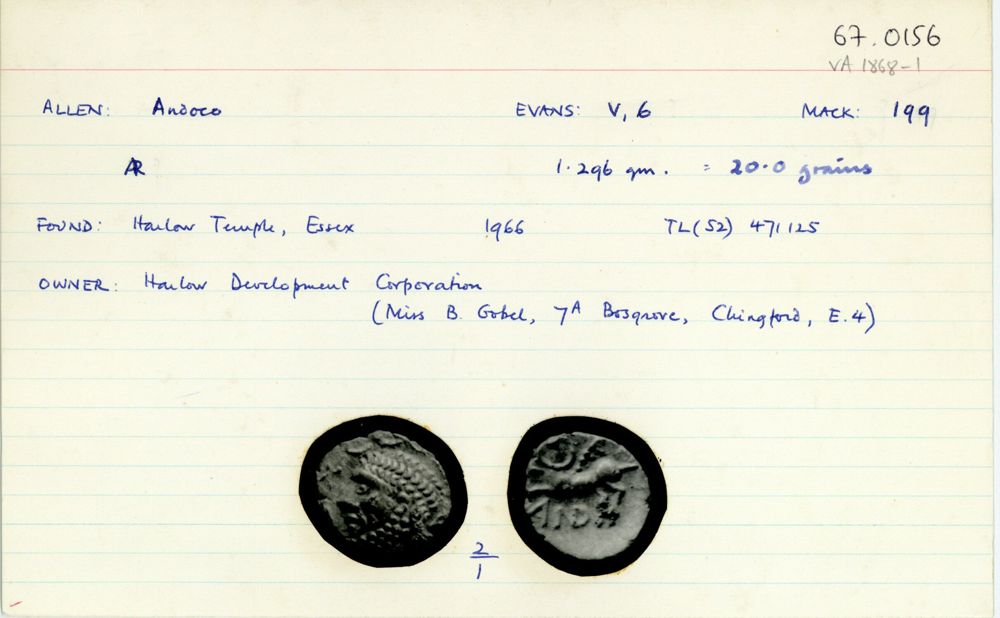 67.0156
VA 1868-1
ALLEN: Andoco EVANS: V, 6 MACK: 199
AR 1.296 gm. = 20.0 grains
FOUND: Harlow Temple, Essex 1966 TL(52) 471125
OWNER: Harlow Development Corporation
(Miss B. Gobel, 7A Bosgrove, Chingford, E.4)
2
1